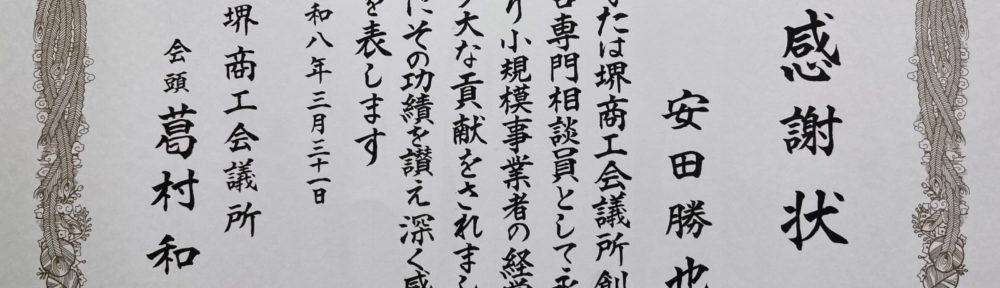 感謝状
安田勝也
たは堺商工会議所創
専門相談員として永
り小規模事業者の経営
大な貢献をされまし
にその功績を讃え深く感
を表します
和八年三月三十一日
堺商工会議所
会頭 葛村和